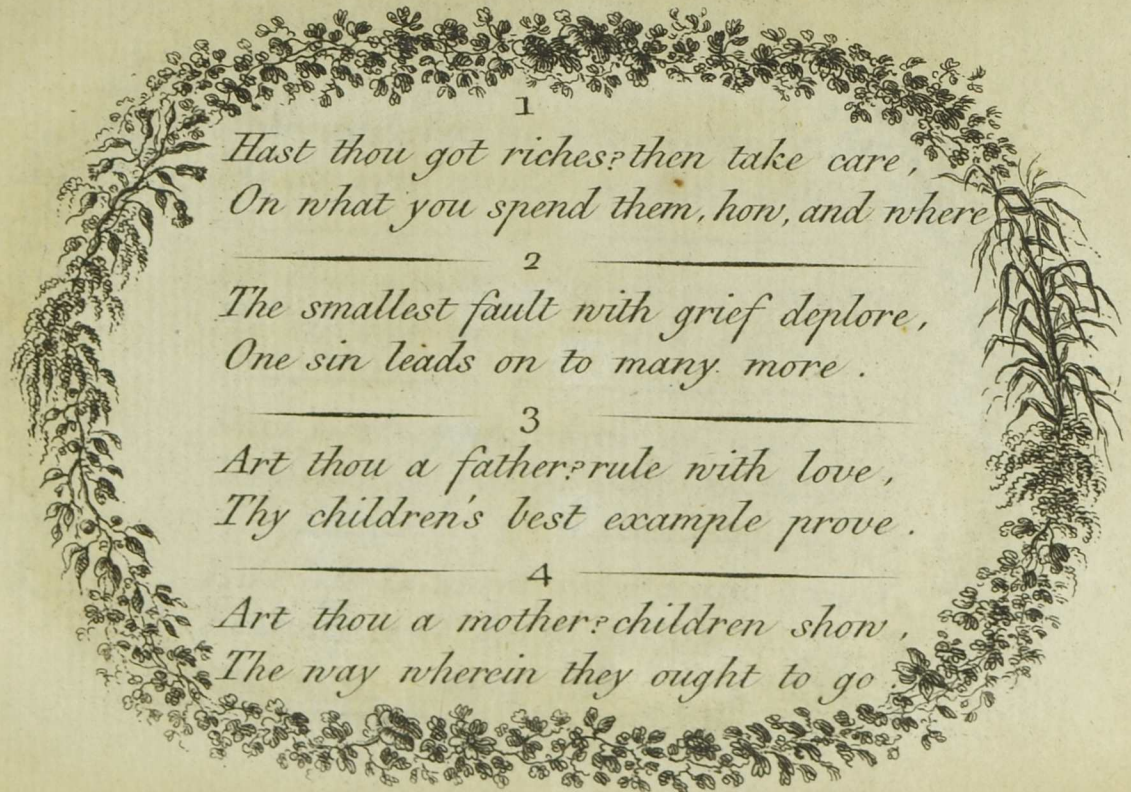 1
Hast thou got riches? then take care,
On what you spend them, how, and where
2
The smallest fault with grief deplore,
One sin leads on to many more.
3
Art thou a father? rule with love,
Thy children's best example prove.
4
Art thou a mother? children show,
The way wherein they ought to go.